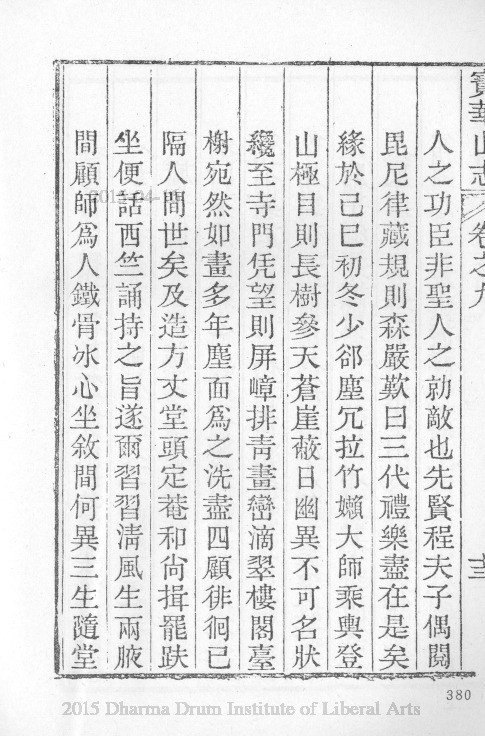 寶華山志 卷之九 十三
人之功臣非聖人之勍敵也先賢程夫子偶閱
毘尼律藏規則森嚴歎曰三代禮樂盡在是矣
緣於己巳初冬少郤塵冗拉竹嬾大師乘輿登
山極目則長樹參天蒼崖蔽日幽異不可名狀
纔至寺門凭望則屏嶂排青畫巒滴翠樓閣臺
榭宛然如畫多年塵面爲之洗盡四顧徘徊已
隔人間世矣及造方丈堂頭定菴和尙揖罷趺
坐便話西竺誦持之旨遂爾習習淸風生兩腋
間顧師爲人鐵骨冰心坐敘間何異三生隨堂
380
2015 Dharma Drum Institute of Liberal Arts